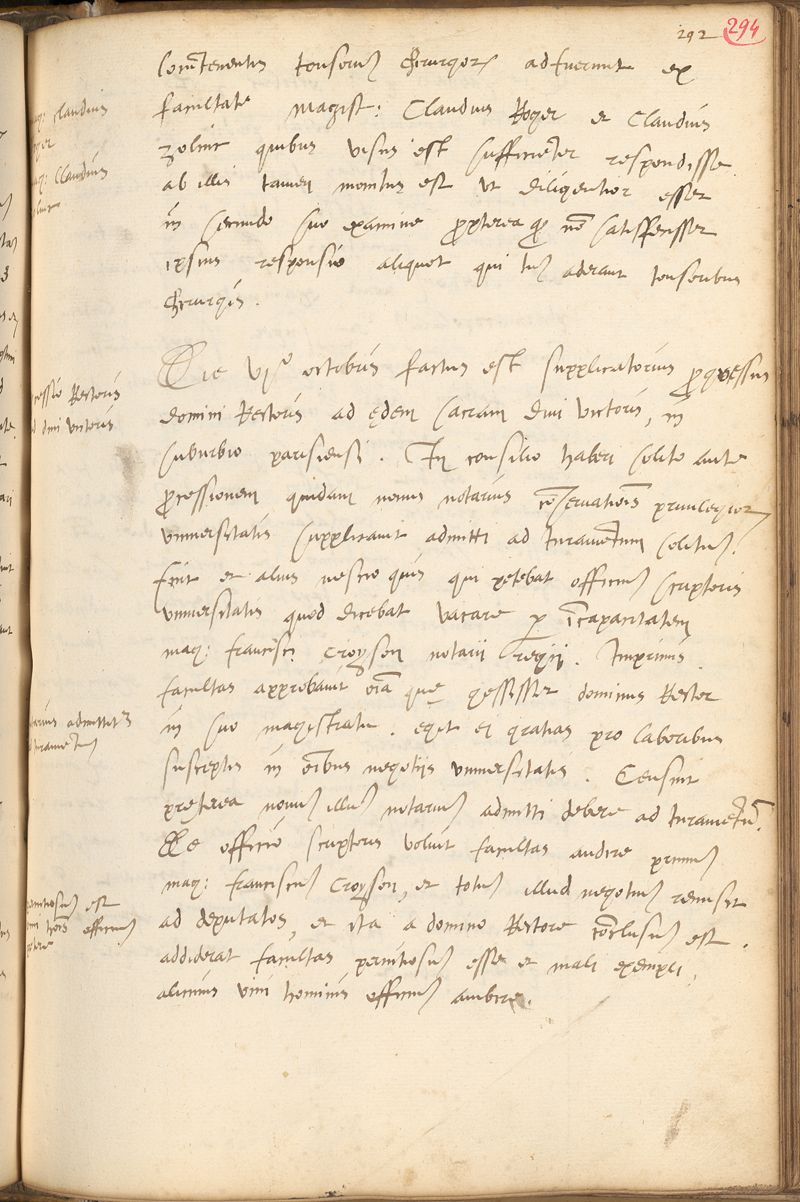 292 294
tonsoruʒ chirurgorꝝ adfuerunt ex
facultate magist: Claudius Roger et Claudius
quibus visus est sufficiēter respondisse
ab illis tamen monitus est ut diligentior esset
in secundo suo examine propterea qꝫ nō satisfecisset
ipsius responsio aliquot qui tuʒ aderant tonsoribus
chirurgis.
Die vjᵃ octobris factus est supplicatorius progressus
domini Rectoris ad ędem sacram divi victoris, in
suburbio parisiensi. In consilio haberi solito ante
processionem quidam novus notarius cōservatiōis privilegiorꝝ
universitatis supplicavit admitti ad iuramētum solituʒ.
fuit et alius nescio quis qui petebat officiuʒ scriptoris
universitatis quod dicebat vacare p īcapacitatem
mag: francisci Croyson notarii regii. Imprimis
facultas approbavit oīa quę gessisset dominus Rector
in suo magistratu. egit ei gratias pro laboribus
susceptis in oībus negotijs universitatis. Censuit
pręterea novuʒ illuʒ notariuʒ admitti debere ad iuramētū.
De officio scriptoris voluit facultas audire primuʒ
mag: franciscuʒ Croyson, et totuʒ illud negotiuʒ remisit
ad deputatos, et ita a domino Rectore cōclusuʒ est.
addiderat facultas pernitiosuʒ esse et mali exempli
alicuius vivi hominis officiuʒ ambire.
Claudius
Claudius
Rectoris
divi victoris
admittit
iuramētuʒ
est
officiuʒ